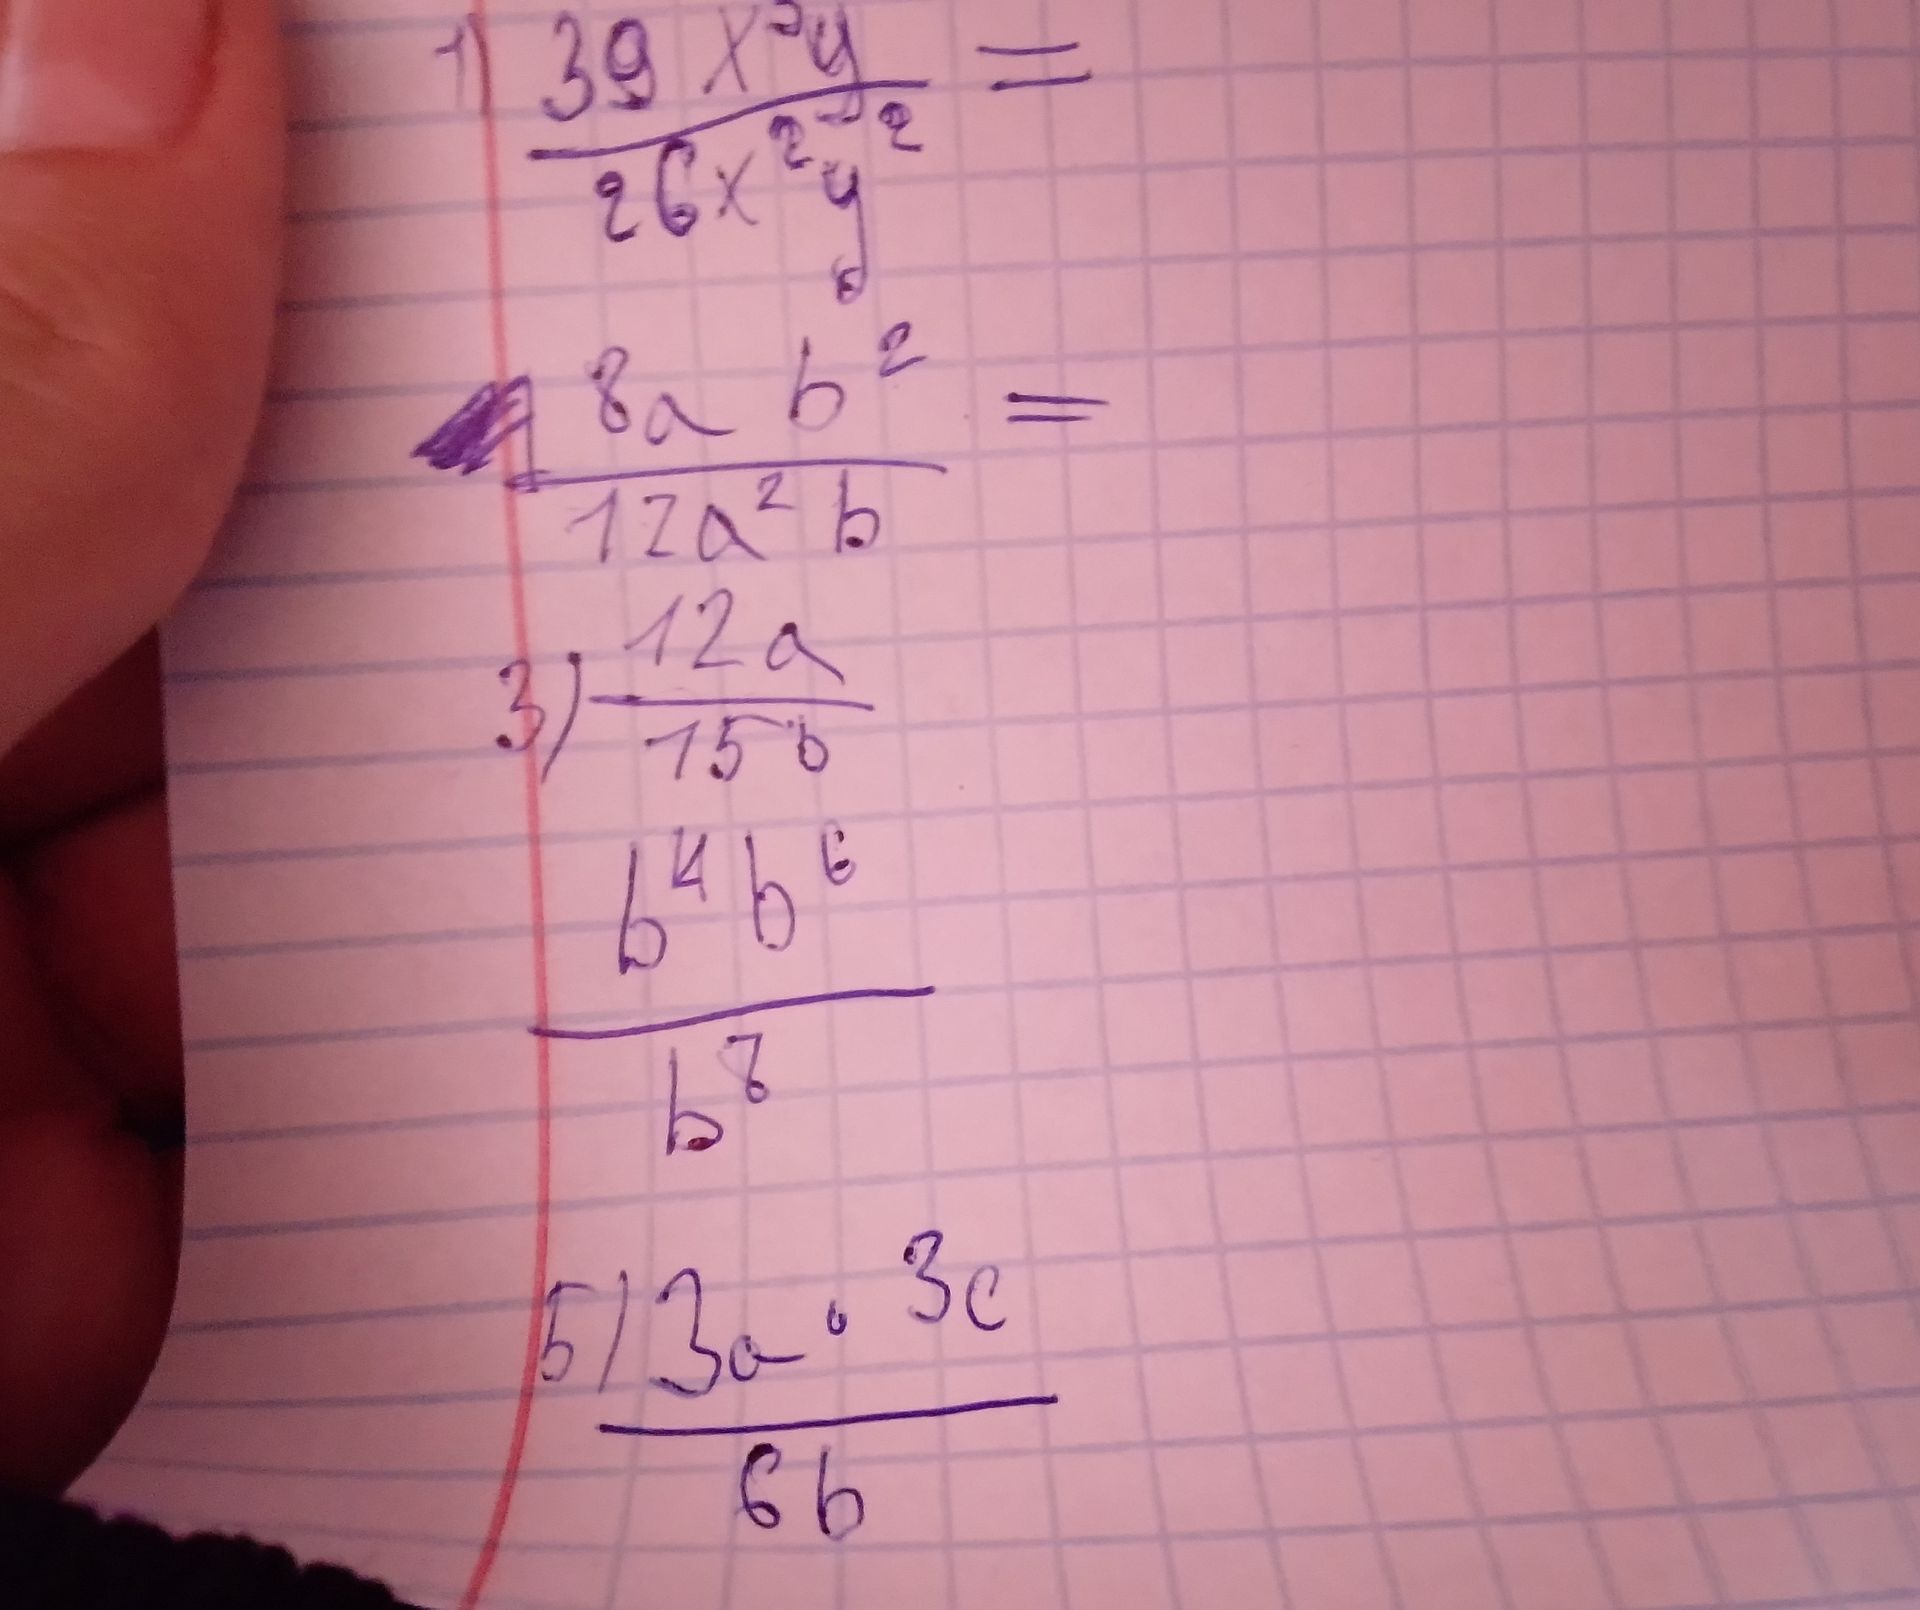 1) 39 x³y =
26x²y²
8a b² =
12a² b
3) 12a
15b
b⁴ b⁶
b⁸
5) 3a · 3c
6b